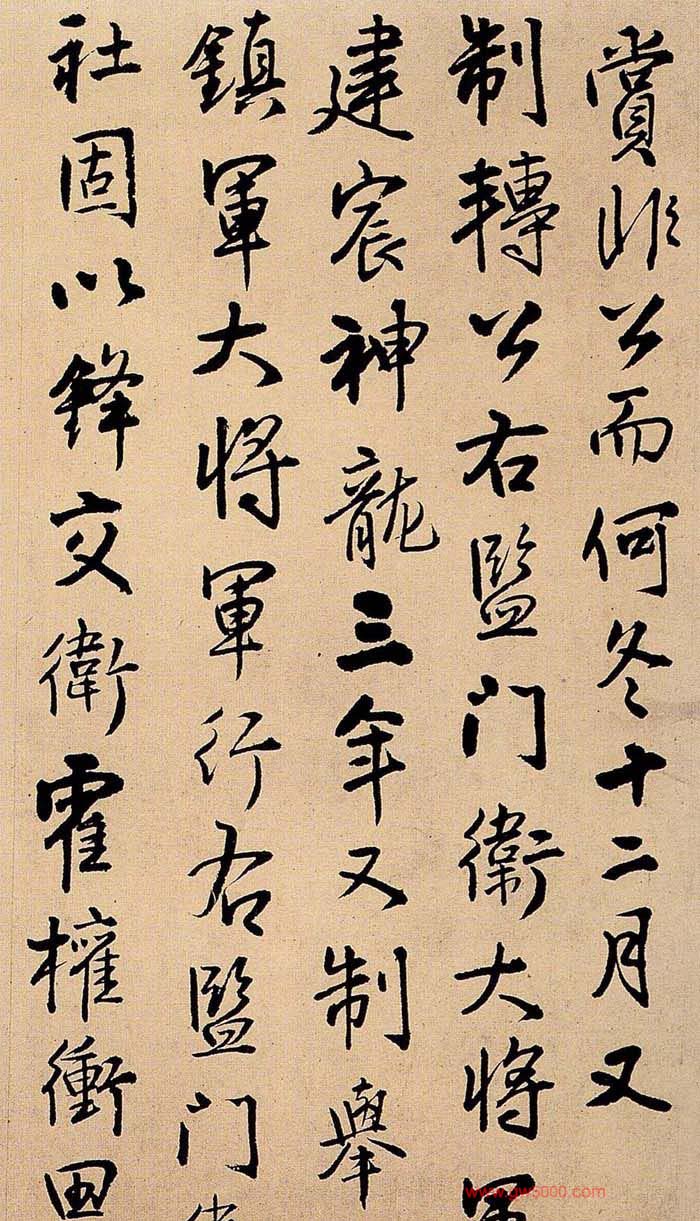 賞非公而何冬十二月又
制轉公右監门衛大将軍
建宸神龍三年又制舉
鎮軍大将軍行右監门衛
社固以鋒交衛霍權衝田
www.gw5000.com